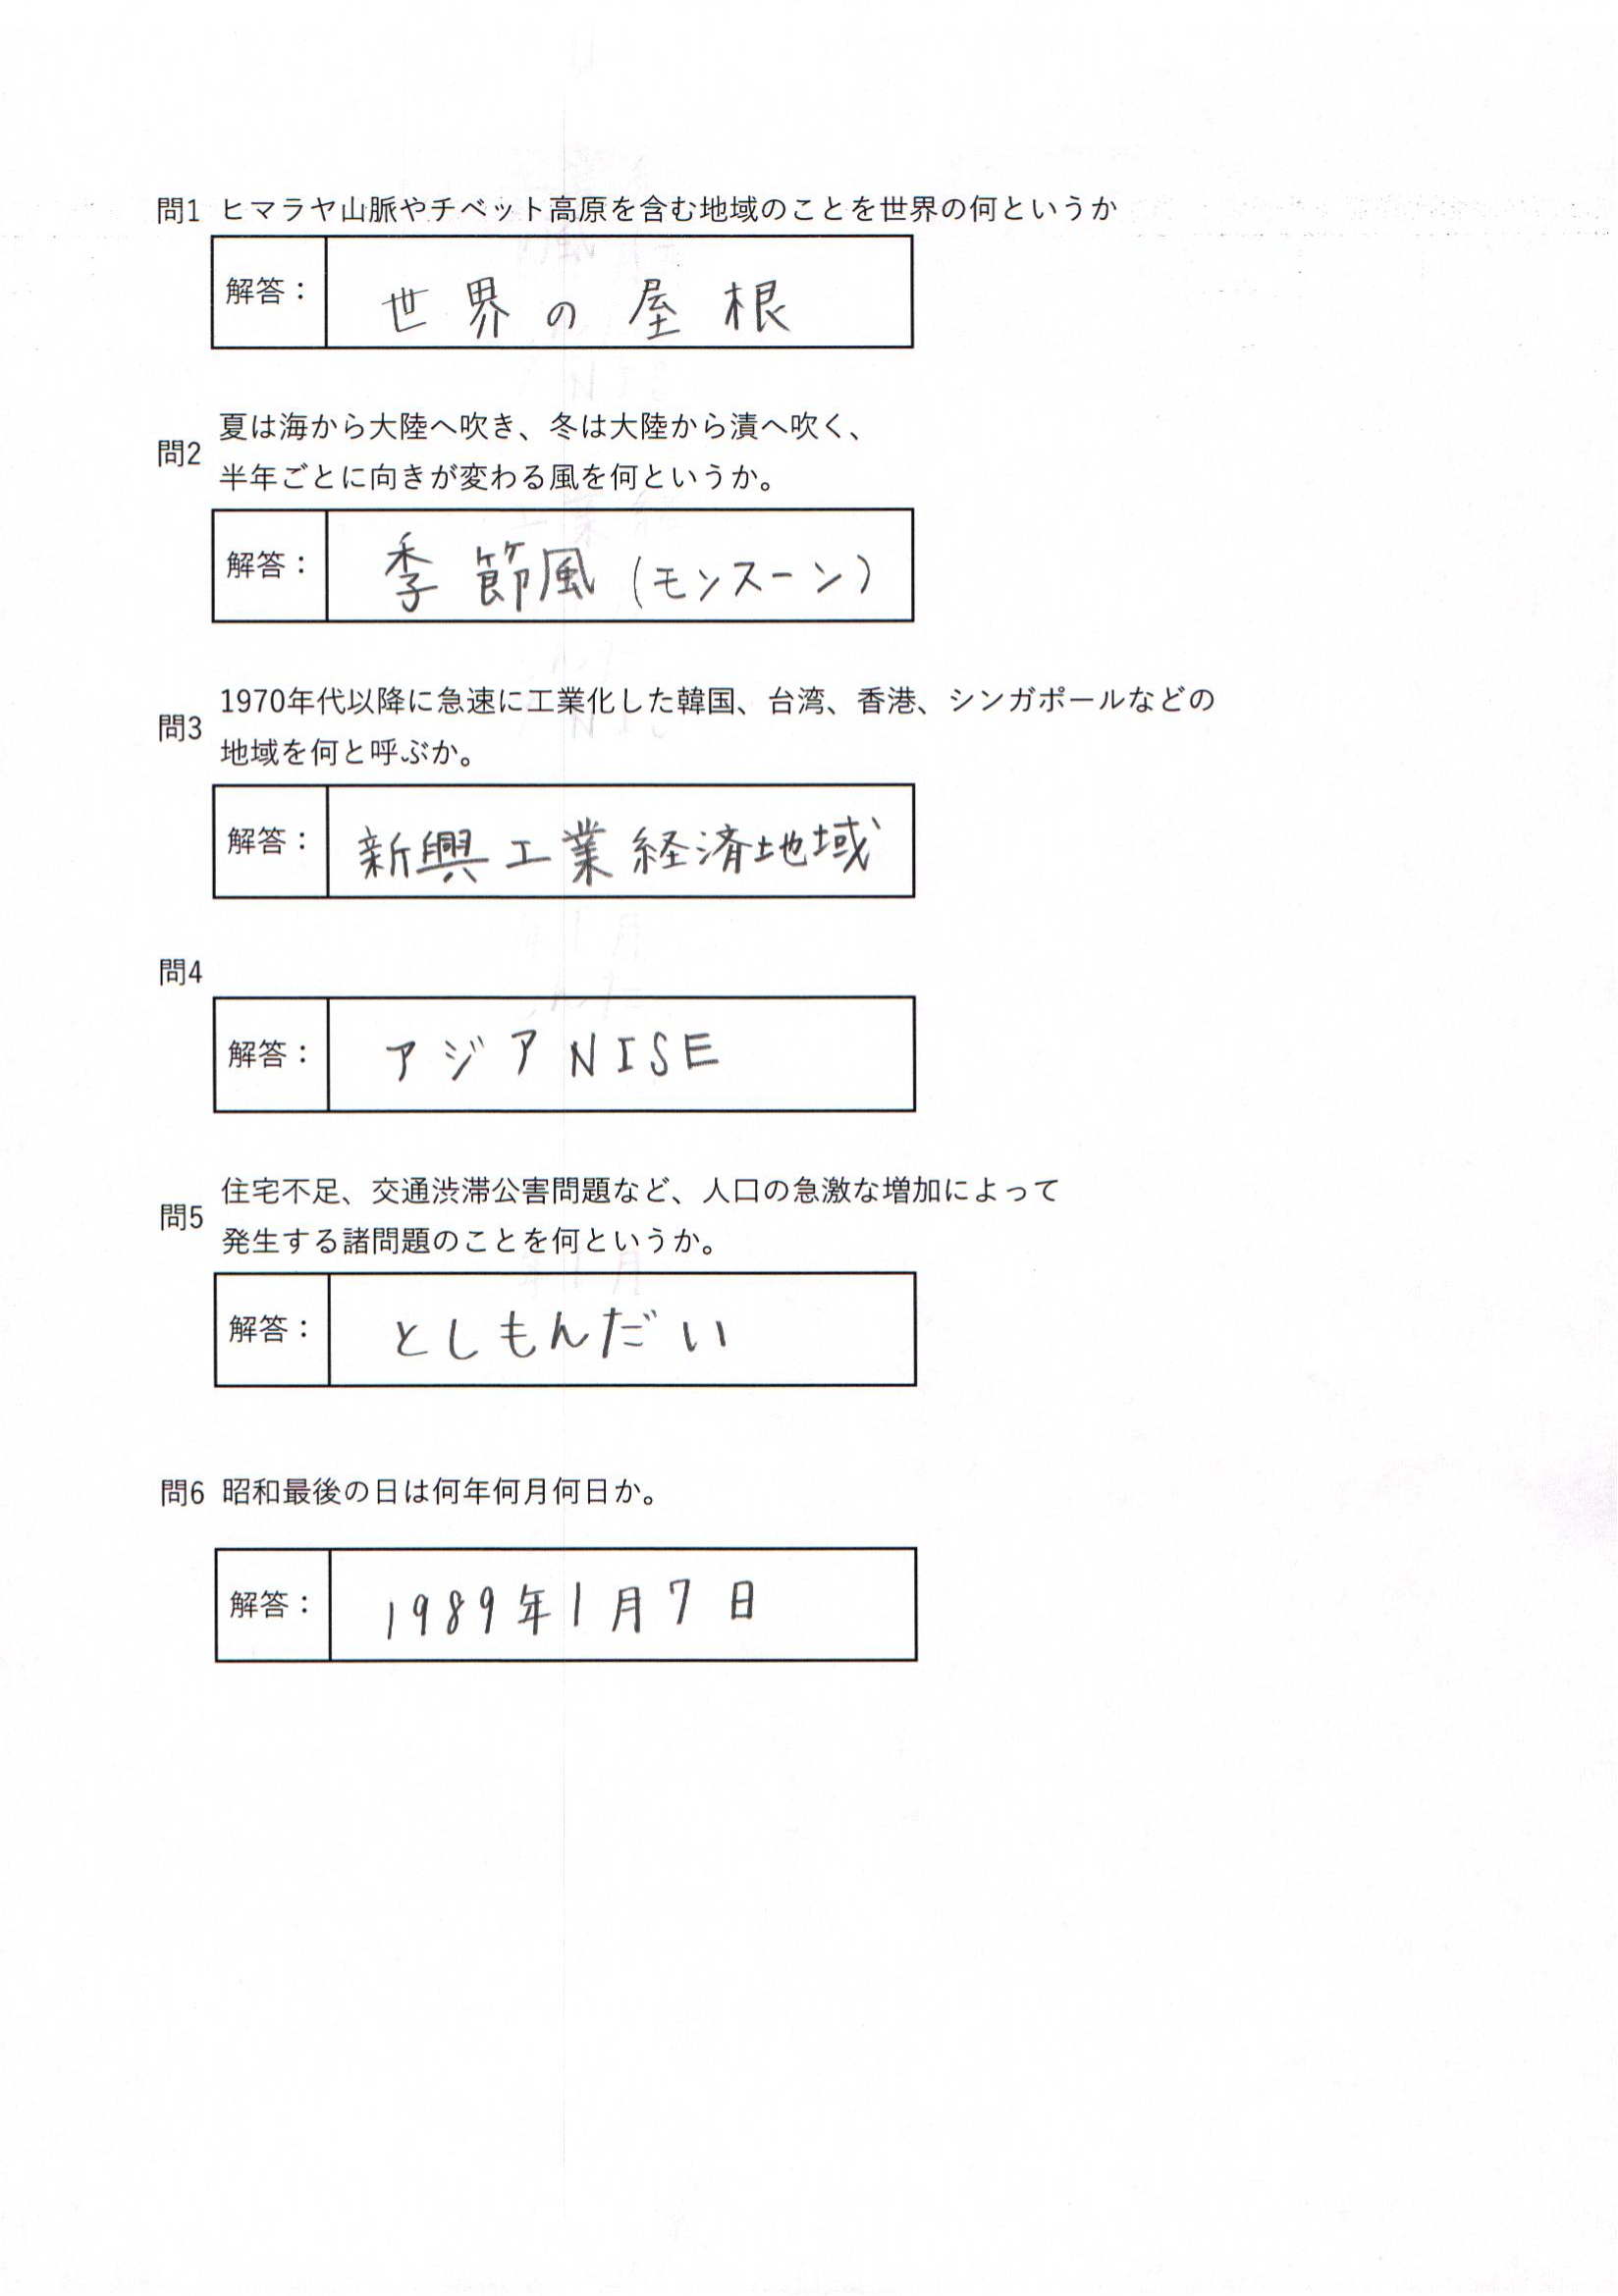 問1 ヒマラヤ山脈やチベット高原を含む地域のことを世界の何というか
解答： 世界の屋根
問2 夏は海から大陸へ吹き、冬は大陸から漬へ吹く、
半年ごとに向きが変わる風を何というか。
解答： 季節風（モンスーン）
問3 1970年代以降に急速に工業化した韓国、台湾、香港、シンガポールなどの
地域を何と呼ぶか。
解答： 新興工業経済地域
問4
解答： アジアNISE
問5 住宅不足、交通渋滞公害問題など、人口の急激な増加によって
発生する諸問題のことを何というか。
解答： としもんだい
問6 昭和最後の日は何年何月何日か。
解答： 1989年1月7日